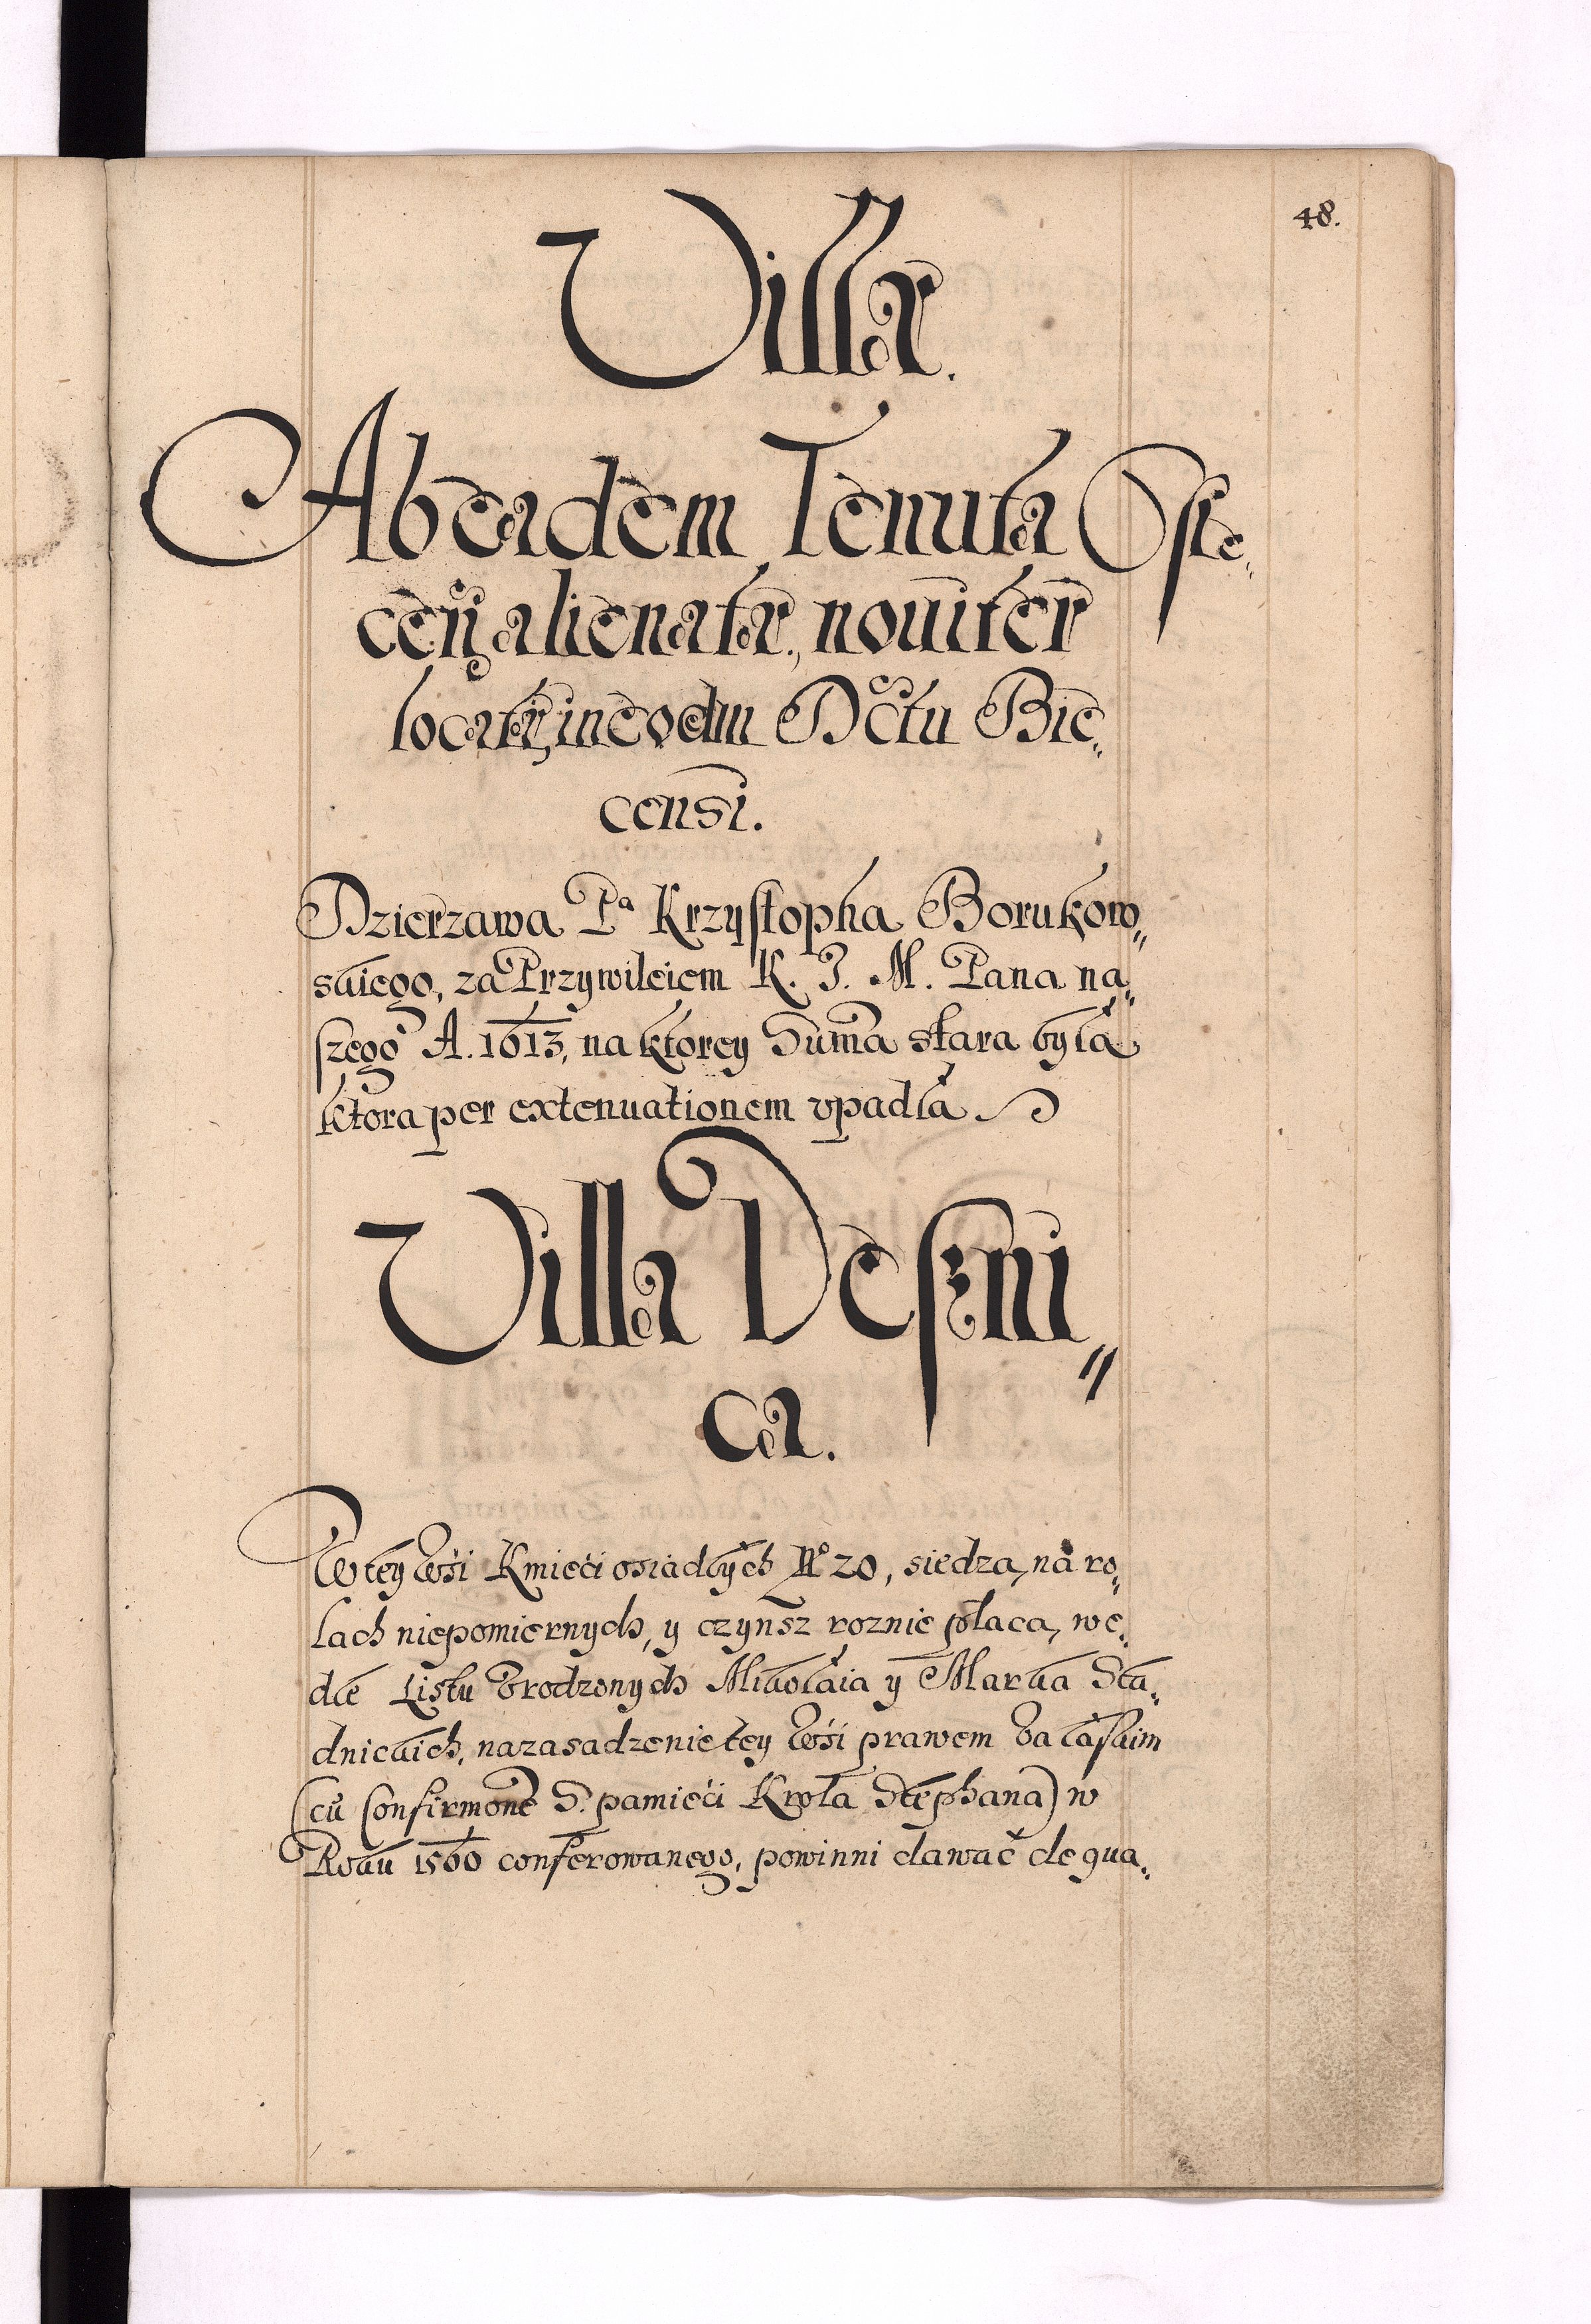 48.
Villæ.
Ab eadem Tenuta Osie„
cen: alienatæ, nouiter
locatæ, in eodm Dctu Bie„
censi.
Dzierzawa Pa Krzysstopha Borukow„
skiego, za Przywileiem K. J. M. Pana na„
szego A. 1613, na ktorey Summa stara była
ktora per extenuationem vpadła
Villa Deszni„
ca.
W tey Wsi Kmieci osiadłych No 20, siedzą na ro„
lach niepomiernych, y czynsz roznie płacą, we„
dle Listu Vrodzonych Mikołaia y Marka Sta„
dnickich, na zasadzenie tey Wsi prawem Wałaskim
(cu Confirmone S. pamięci Krola Stephana) w
Roku 1560 conferowanego, powinni dawać de qua„